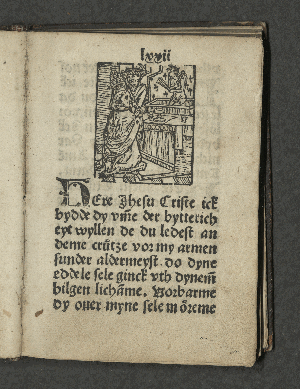 lxxii
HEre Jhesu Criste ick
bydde dy vm̄e der bytterich
eyt wyllen de du ledest an
deme crütze vor my armen
sunder aldermeyst. do dyne
eddele sele ginck vth dynem
hilgen lichāme. Vorbarme
dy ouer myne sele in öreme